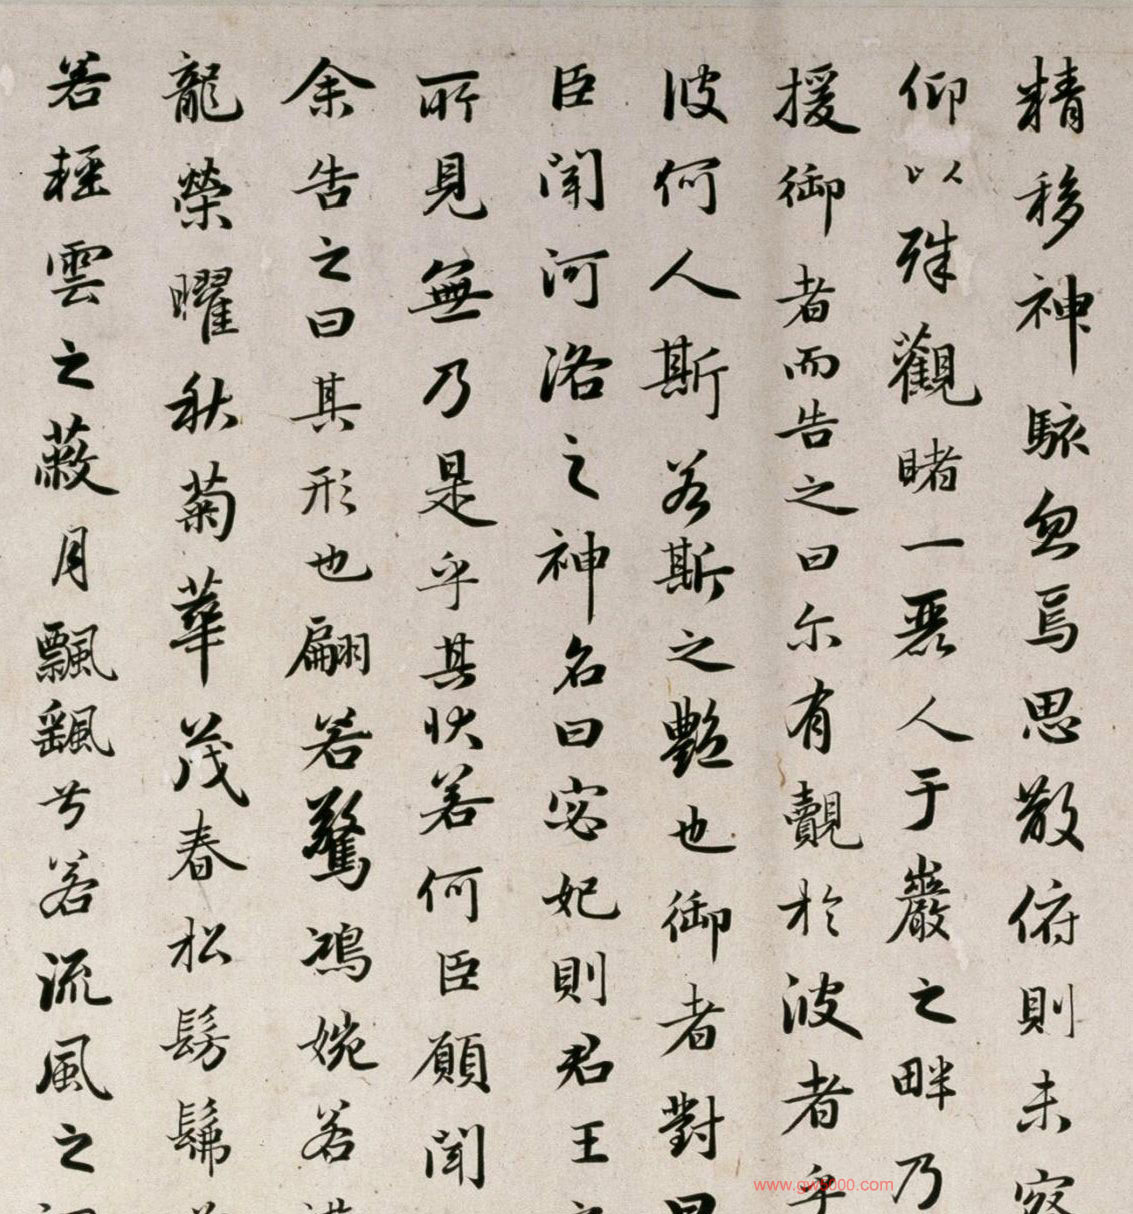 精移神駭忽焉思散俯則未察
仰以殊觀睹一麗人于巖之畔乃
援御者而告之曰尔有覿於彼者乎
彼何人斯若斯之艷也御者對曰
臣聞河洛之神名曰宓妃則君王之
所見無乃是乎其狀若何臣願聞
余告之曰其形也翩若驚鴻婉若游
龍榮曜秋菊華茂春松髣髴兮
若輕雲之蔽月飄飖兮若流風之迴
www.gw5000.com